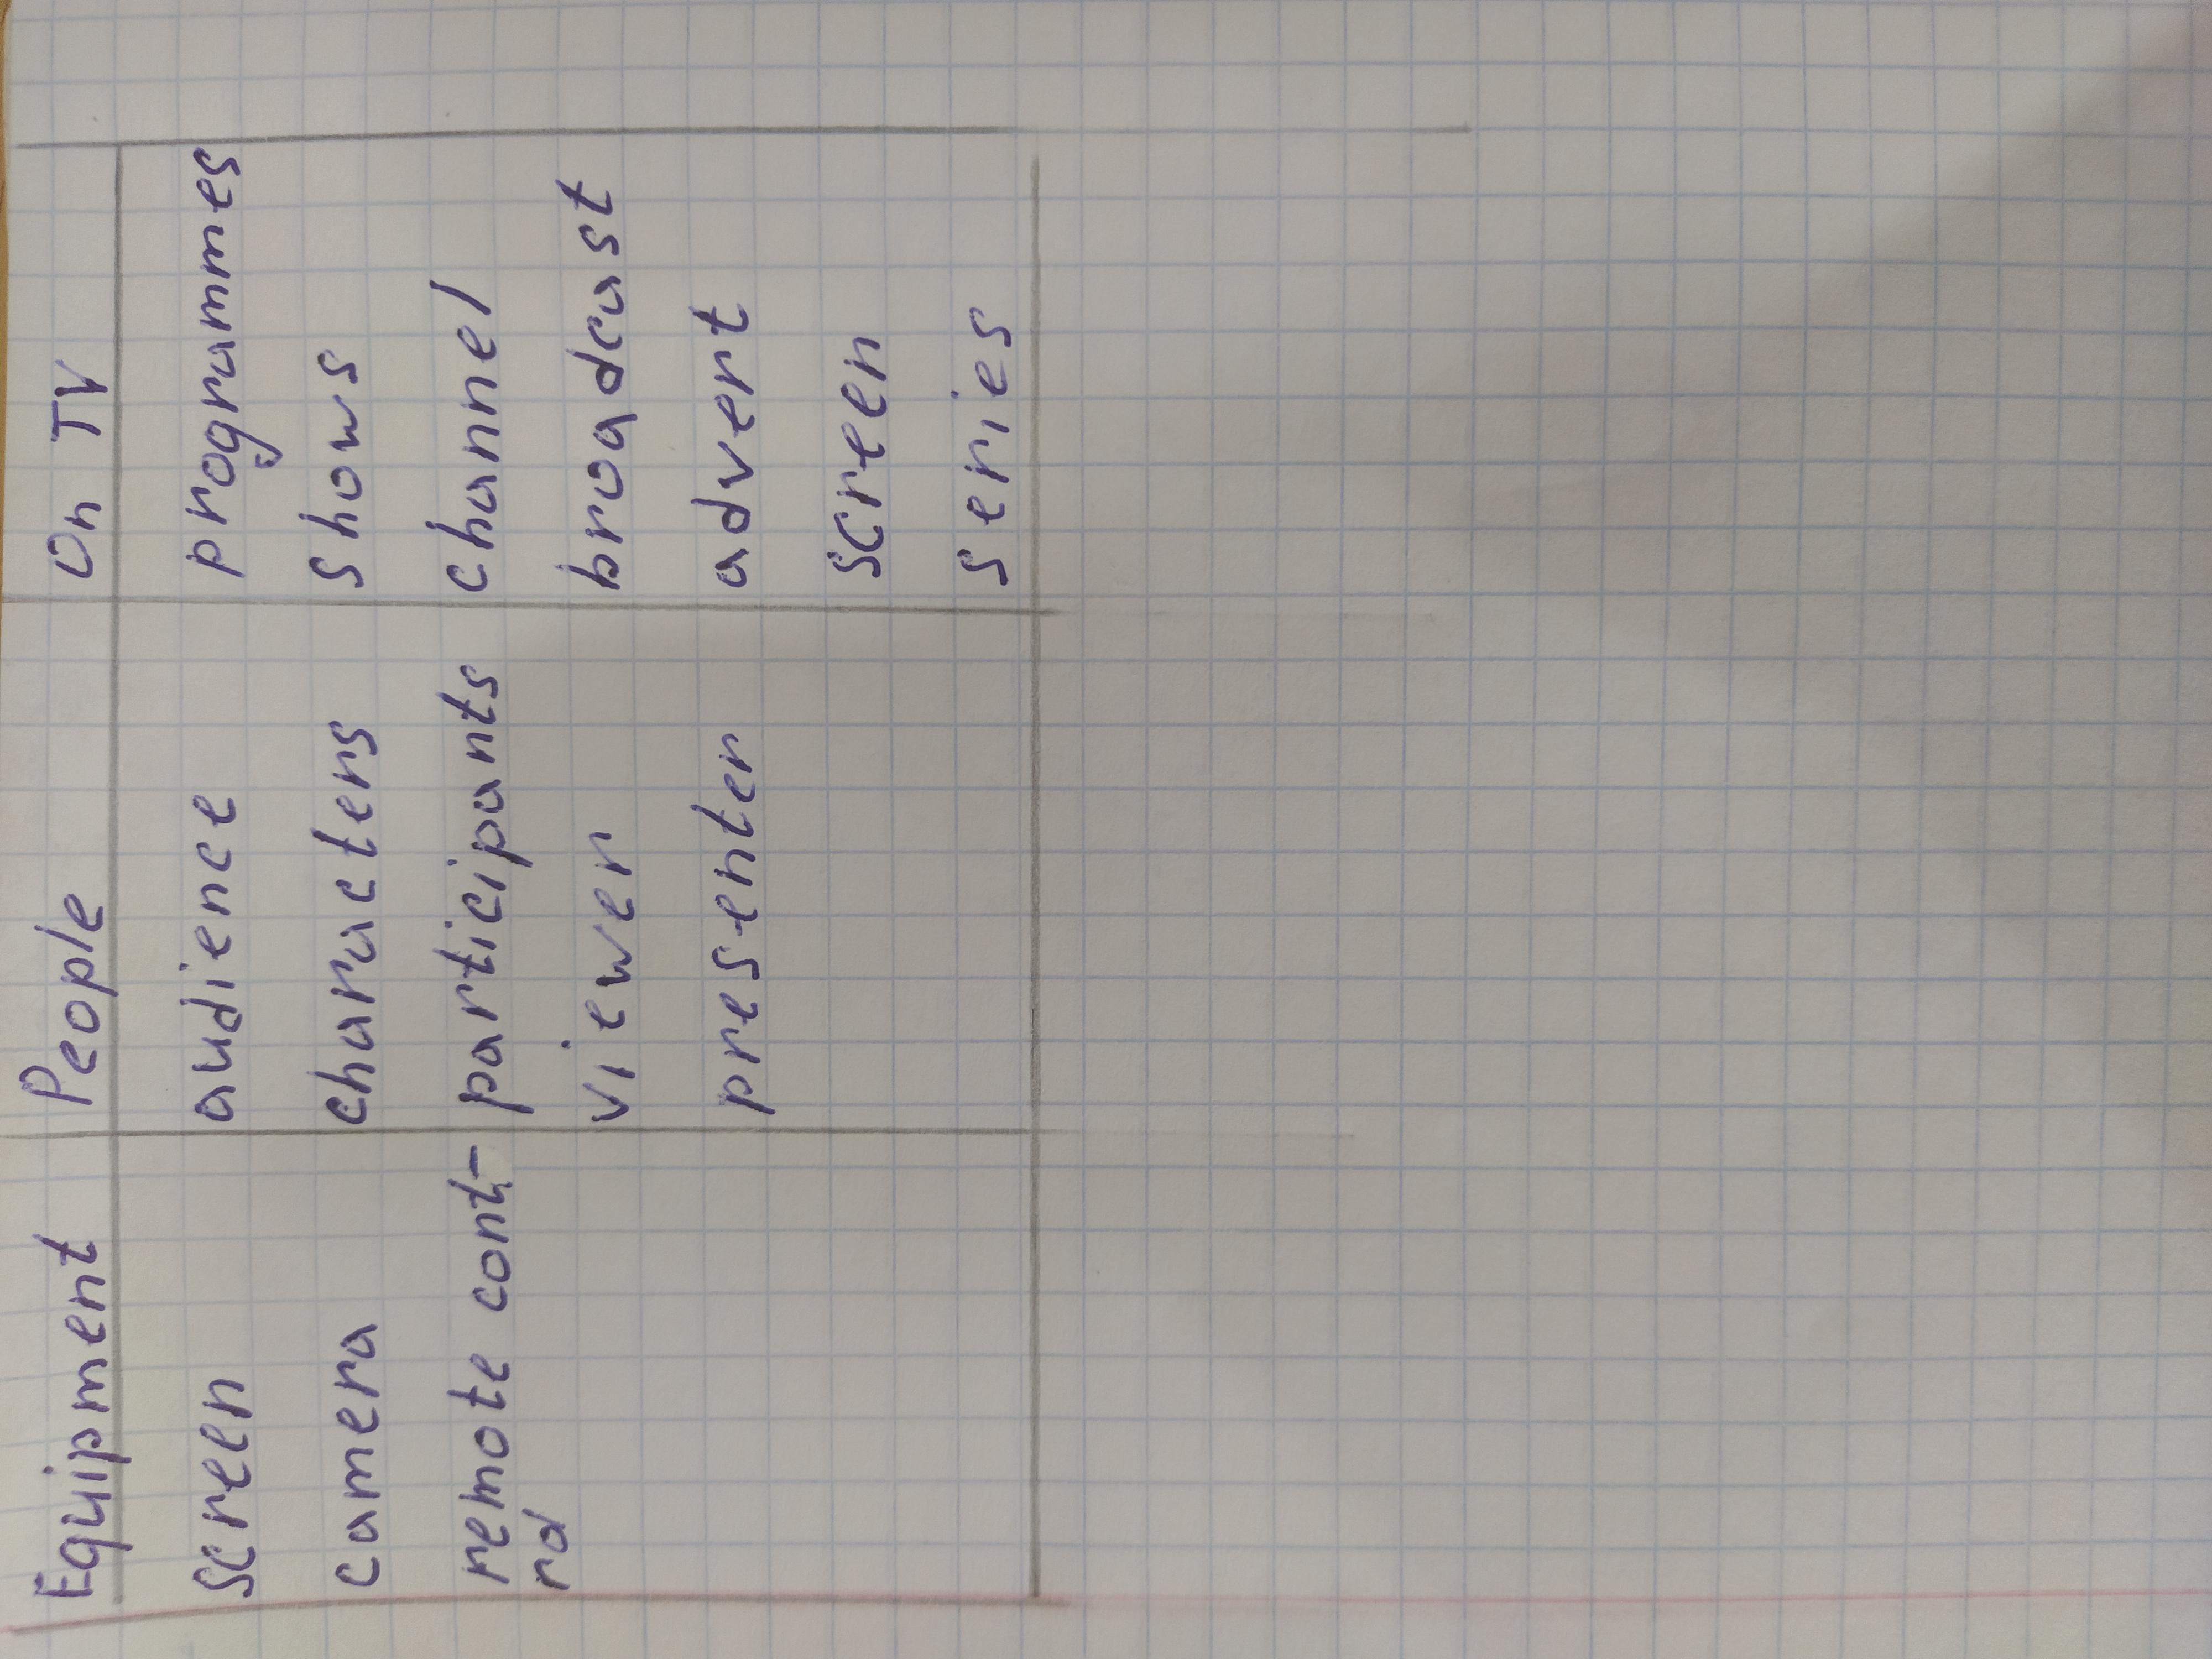 Equipment People On TV
screen audience programmes
camera characters shows
remote cont- participants channel
rol viewer broadcast
presenter advert
screen
series